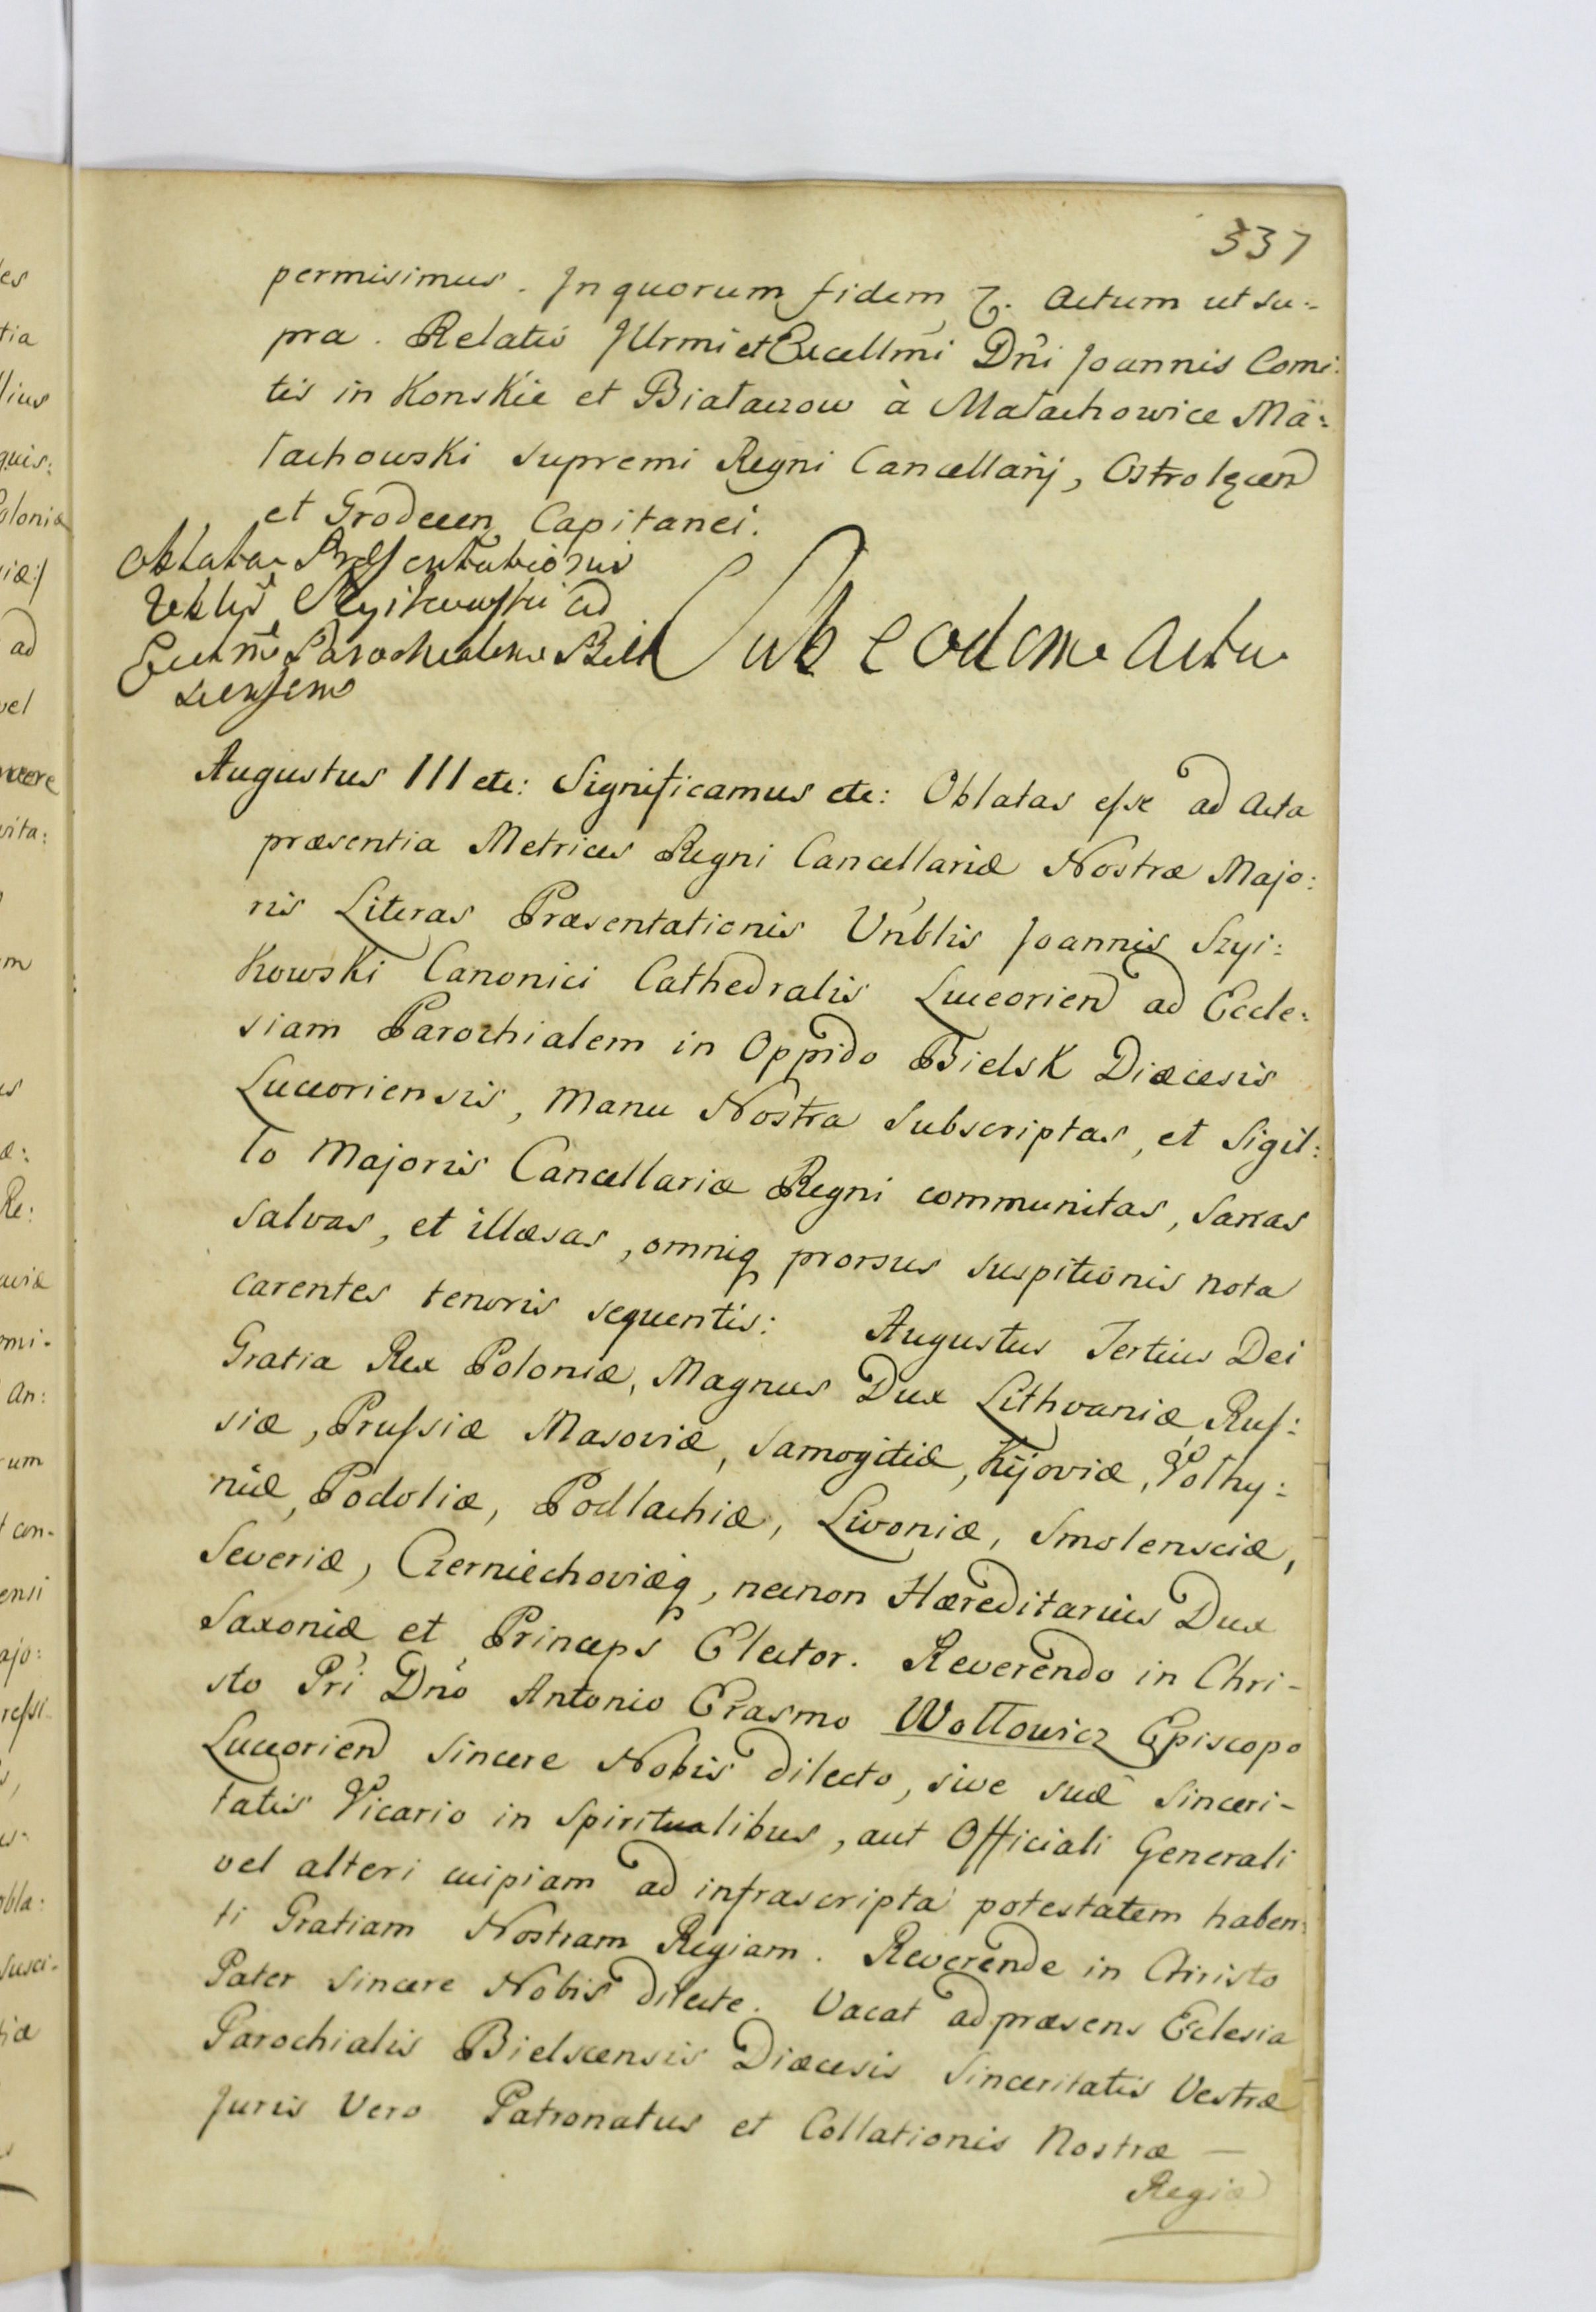 337
permisimus. In quorum fidem etc. Actum ut su:
pra. Relatio Illrmi et Excellmi Dni Joannis Comi:
tis in Konskie et Białaczow à Małachowice Ma:
łachowski Supremi Regni Cancellarij, Ostrolęcen
et Grodecen Capitanei.
Oblata Præsentationis
Vnblis Szyikowski ad
Ecclm Parochialem Biel
scensem
Sub eodem Actu
Augustus III etc: Significamus etc: Oblatas esse ad Acta
præsentia Metrices Regni Cancellariæ Nostræ Majo:
ris Literas Præsentationis Vnblis Joannis Szyi:
kowski Canonici Cathedralis Luceorien ad Eccle:
siam Parochialem in Oppido Bielsk Diæcesis
Luceoriensis, Manu Nostra Subscriptas, et Sigil:
lo Majoris Cancellariæ Regni communitas, Sanas
Salvas, et illæsas, omniq prorsus suspitionis nota
carentes tenoris sequentis: Augustus Tertius Dei
Gratia Rex Poloniæ, Magnus Dux Lithvaniæ, Rus:
siæ, Prussiæ Masoviæ, Samogitiæ, Kijoviæ, Volhy:
niæ, Podoliæ, Podlachiæ, Livoniæ, Smolensciæ,
Severiæ, Czerniechoviæq, necnon Hæreditarius Dux
Saxoniæ et Princeps Elector. Reverendo in Chri-
sto Pri Dno Antonio Erasmo Wołłowicz Episcopo
Luceorien Sincere Nobis dilecto, sive suæ Sinceri-
tatis Vicario in Spiritualibus, aut Officiali Generali
vel alteri cuipiam ad infrascripta potestatem haben:
ti Gratiam Nostram Regiam. Reverende in Christo
Pater Sincere Nobis dilecte. Vacat ad præsens Eclesia
Parochialis Bielscensis Diæcesis Sinceritatis Vestræ
Juris Vero Patronatus et Collationis Nostræ —
Regiæ